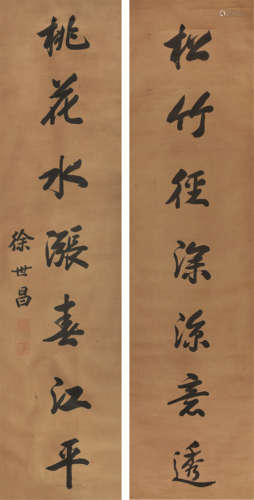 松竹径深凉意透
桃花水漲春江平
徐世昌